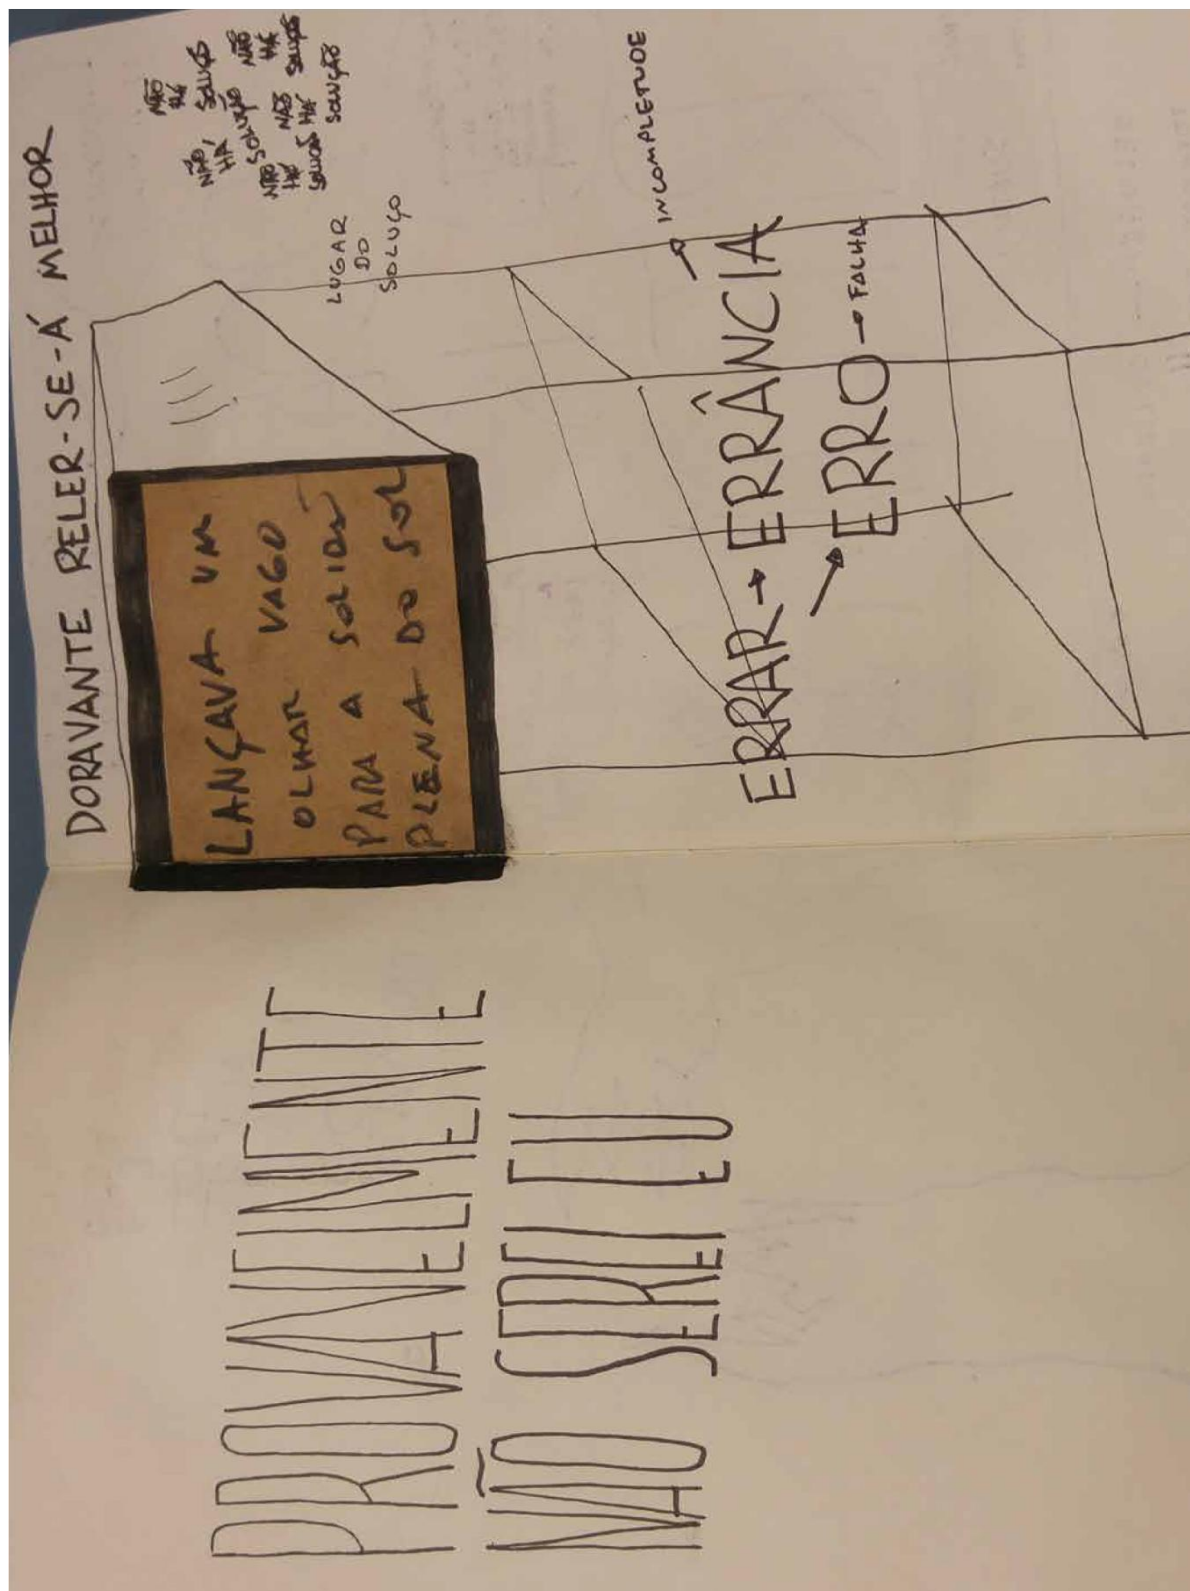 PROVAVELMENTE
NÃO SEREI EU
DORAVANTE RELER-SE-Á MELHOR
LANÇAVA UM
OLHAR VAGO
PARA A SOLIDÃO
PLENA DO SOL
NÃO
HÁ
SOLUÇÃO
NÃO
HÁ
SOLUÇÃO
NÃO
HÁ
SOLUÇÃO
NÃO
HÁ
SOLUÇÃO
NÃO
HÁ
SOLUÇÃO
LUGAR
DO
SOLUÇO
ERRAR → ERRÂNCIA → INCOMPLETUDE
→ ERRO → FALHA